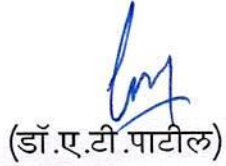 (डॉ.ए.टी.पाटील)